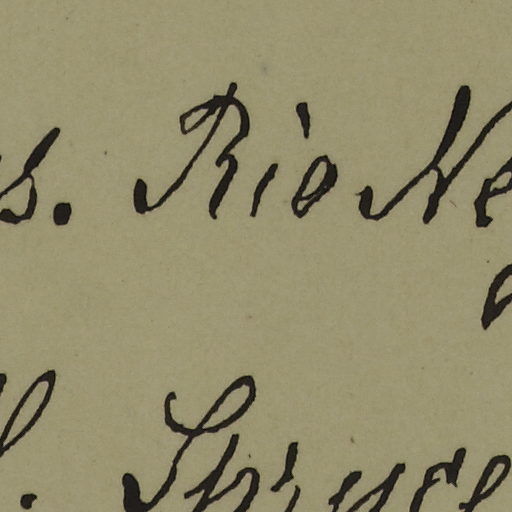 s. Rio Ne
. Spruce